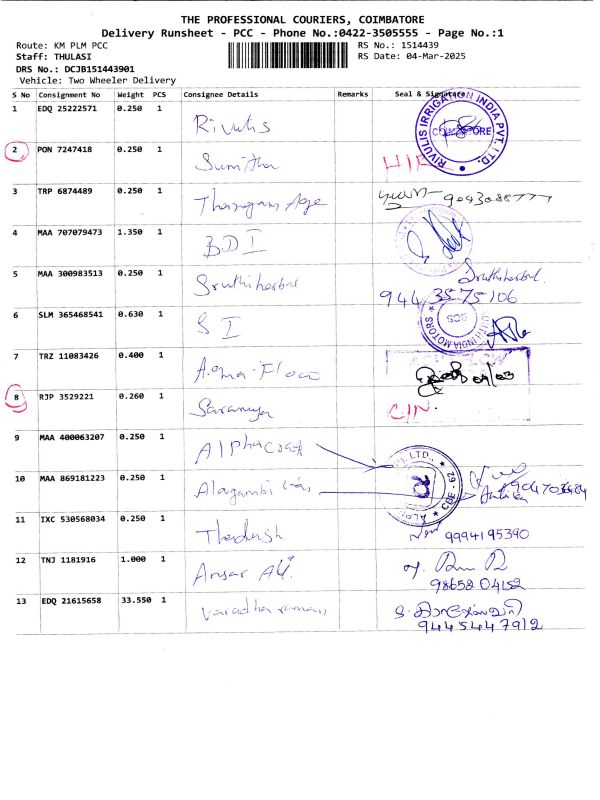 THE PROFESSIONAL COURIERS, COIMBATORE
Delivery Runsheet - PCC - Phone No.:0422-3505555 - Page No.:1
Route: KM PLM PCC RS No.: 1514439
Staff: THULASI RS Date: 04-Mar-2025
DRS No.: DCJB151443901
Vehicle: Two Wheeler Delivery
S No Consignment No Weight PCS Consignee Details Remarks Seal & Signature
1 EDQ 25222571 0.250 1 Rivulis RIVULIS IRRIGATION INDIA PVT. LTD. COIMBATORE
2 PON 7247418 0.250 1 Sumitha
3 TRP 6874489 0.250 1 Thangam Age 9043088777
4 MAA 707079473 1.350 1 BDI
5 MAA 300983513 0.250 1 Sruthiherbal Sruthiherbal
944 3575106
6 SLM 365468541 0.630 1 S I
7 TRZ 11083426 0.400 1 04/03
8 RJP 3529221 0.260 1 Saranya C/N.
9 MAA 400063207 0.250 1 Alphacraft
10 MAA 869181223 0.250 1 CBE - 62
11 IXC 530568034 0.250 1 9994195390
12 TNJ 1181916 1.000 1 Ansar Ali.
98658 04152
13 EDQ 21615658 33.550 1 Varadharaman
9445447912